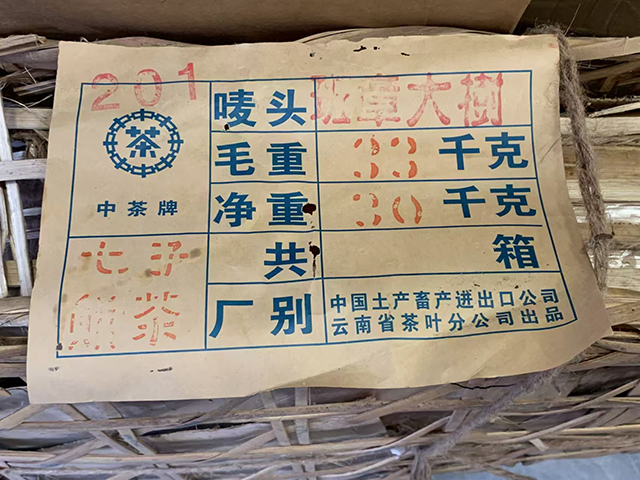 201
唛头 班章大樹
茶
毛重 33 千克
中茶牌
净重 30 千克
七子
餅茶
共 箱
厂别
中国土产畜产进出口公司
云南省茶叶分公司出品